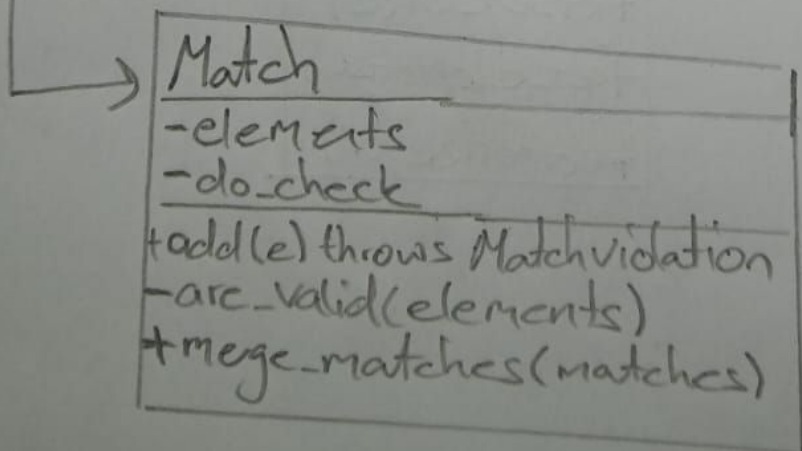 Match
-elements
-do_check
+add(e) throws Matchviolation
-are_valid(elements)
+mege_matches(matches)